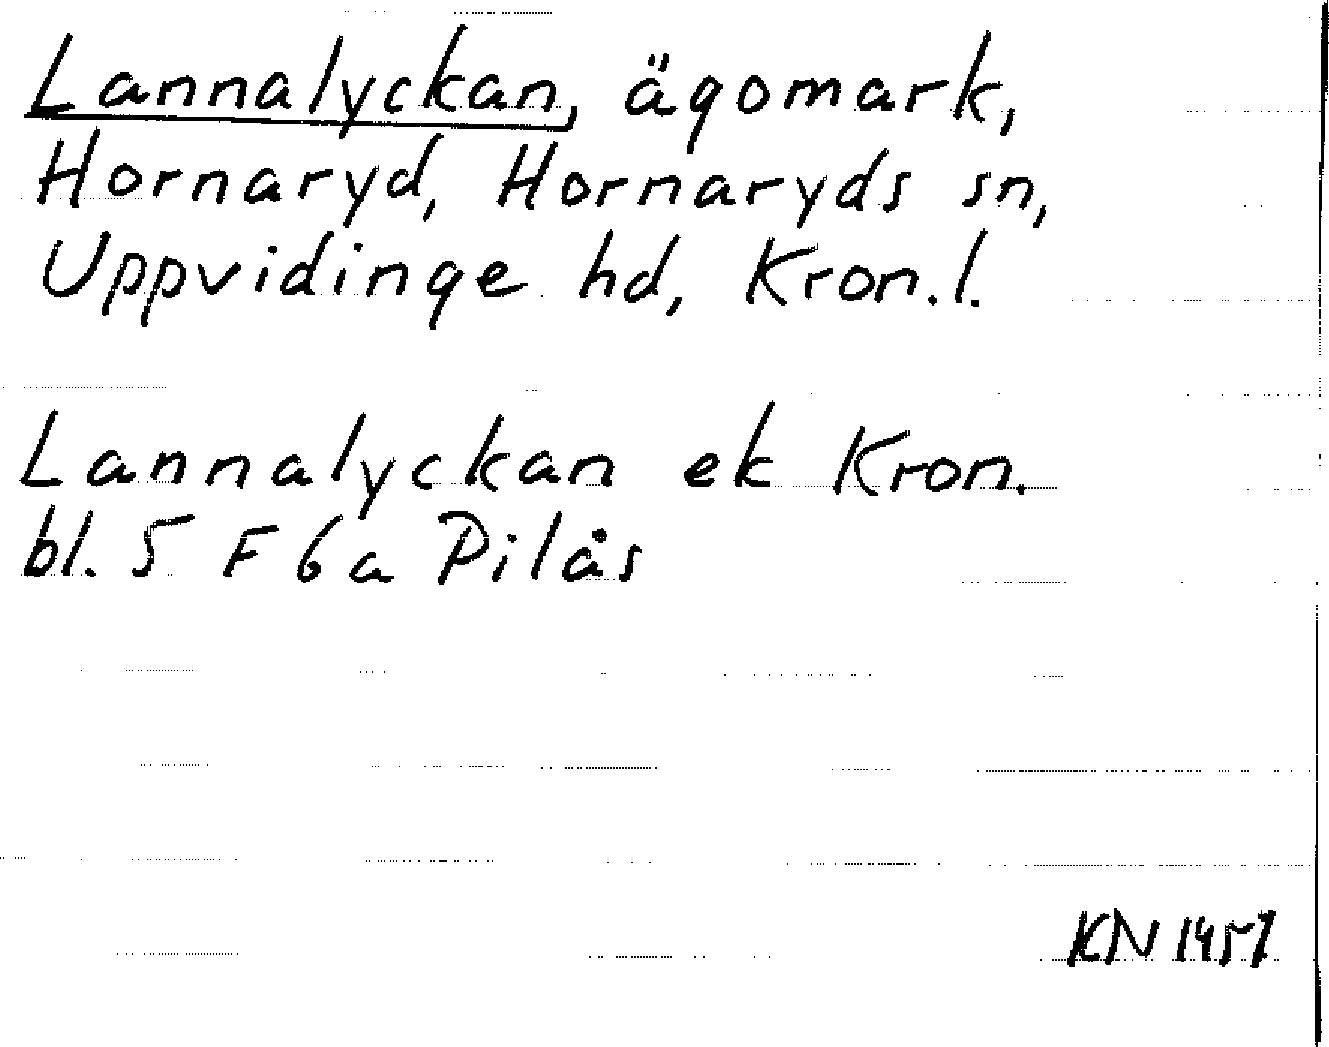 Lannalyckan, ägomark,
Hornaryd, Hornaryds sn,
Uppvidinge hd, Kron.l.
Lannalyckan ek Kron.
bl. 5 F 6a Pilås
KN 1957